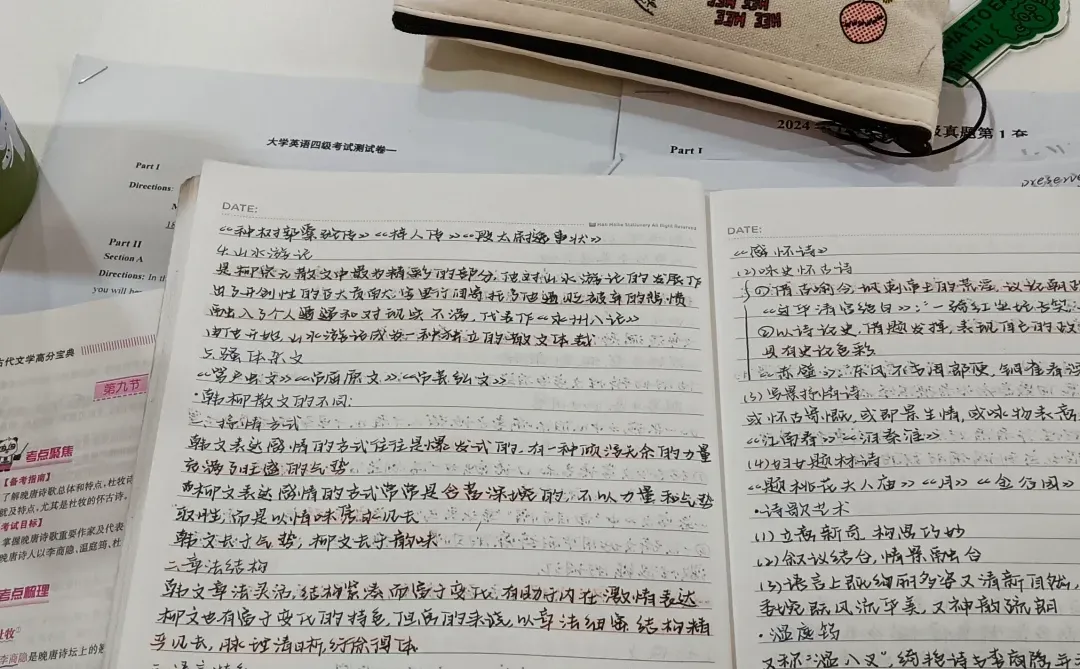 HEE HEE
大学英语四级考试测试卷一
Part I
Directions:
Part II
Section A
Directions: In th
you will be
Part I
2024
级真题第1套
preserve
DATE:
《种树郭橐驼传》《梓人传》《段太尉逸事状》
4.山水游记
是柳宗元散文中最为精彩的部分,他对山水游记的发展作
出了开创性的巨大贡献,字里行间寄托了他遭贬被弃的悲愤
融入了个人遭遇和对现实不满,代表作《永州八记》
由他开始,山水游记成为一种独立的散文体裁
5.骚体杂文
《骂尸虫文》《吊屈原文》《吊苌弘文》
·韩柳散文的不同:
一、抒情方式
韩文表达感情的方式往往是爆发式的,有一种
的力量
充满了旺盛的气势
而柳文表达感情的方式常常是含蓄深婉的,不以力量和气势
取胜,而是以情味隽永见长
韩文长于气势,柳文长于韵味
二、章法结构
韩文章法灵活,结构紧凑而富于变化,有助于内在激情表达
柳文也有富于变化的特色,但总的来说,以章法细密、结构精
巧见长,脉理清晰,行徐得体
DATE:
《感怀诗》
(2)咏史怀古诗
①借古喻今,讽刺帝王的荒淫,议论朝政
《过华清宫绝句》:"一骑红尘妃子笑
②以诗论史,借题发挥,表现自己的政
具有史论色彩
《赤壁》:"东风不与周郎便,铜雀春深
(3)写景抒情诗
或怀古寄慨,或即景生情,或咏物表志
《江南春》《泊秦淮》
(4)妇女题材诗
《题桃花夫人庙》《月》《金谷园》
·诗歌艺术
(1)立意新奇,构思巧妙
(2)叙议结合,情景融合
(3)语言上既细丽多姿又清新自然
委婉
风流华美,又神韵疏朗
·温庭筠
又称"温八叉",
诗与李商隐
古代文学高分宝典
第九节
考点聚焦
【备考指南】
了解晚唐诗歌总体和特点,杜牧诗
就及特点,尤其是杜牧的怀古诗。
考试目标】
掌握晚唐诗歌重要作家及代表
晚唐诗人以李商隐、温庭筠、杜
考点梳理
杜牧①
李商隐是晚唐诗坛上的